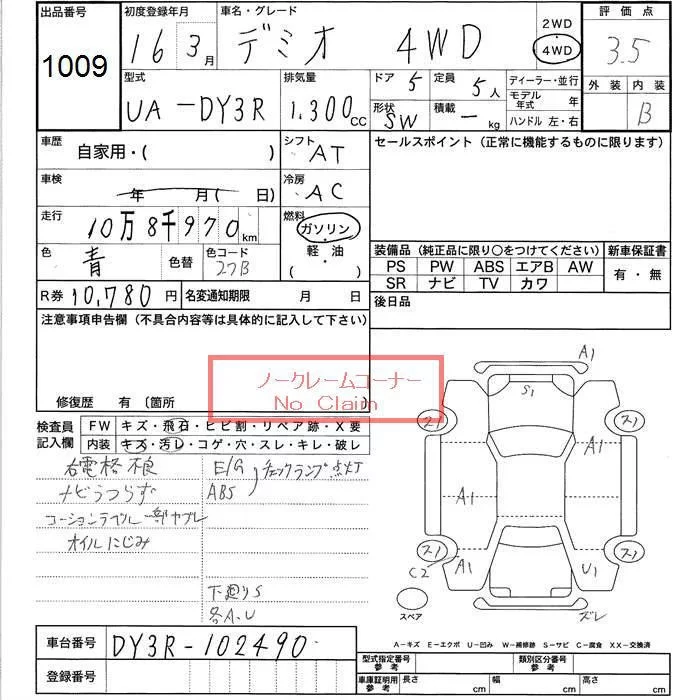 出品番号
1009
初度登録年月
16 3月
車名・グレード
デミオ 4WD
2WD
4WD
評価点
3.5
型式
UA-DY3R
排気量
1.300cc
ドア 5
定員 5人
形状 SW
積載 － kg
ディーラー・並行
モデル年式 年
ハンドル 左・右
外装 内装
B
車歴
自家用・( )
シフト
AT
セールスポイント (正常に機能するものに限ります)
車検
年 月( 日)
冷房
AC
走行
10万8千970km
燃料
ガソリン
軽・油
( )
色
青
色替
色コード
27B
装備品 (純正品に限り○をつけてください)
新車保証書
PS PW ABS エアB AW
SR ナビ TV カワ
有・無
R券 10,780円
名変通知期限 月 日
後日品
注意事項申告欄 (不具合内容等は具体的に記入して下さい)
ノークレームコーナー
No Claim
修復歴 有 〔箇所
検査員
記入欄
FW キズ・飛石・ヒビ割・リペア跡・X要
内装 キズ・汚レ・コゲ・穴・スレ・キレ・破レ
右電格不良
ナビうつらず
コーションラベル一部ヤブレ
オイルにじみ
E/G
ABS
チェックランプ点灯
下廻りS
各A.U
A1
S1
ス1
ス1
A1
A1
ス1
ス1
C2
A1
U1
ズレ
スペア
A－キズ E－エクボ U－凹み W－補修跡 S－サビ C－腐食 XX－交換済
車台番号
DY3R-102490
登録番号
型式指定番号
参考
類別区分番号
参考
車庫証明用
参考
長さ cm
幅 cm
高さ cm